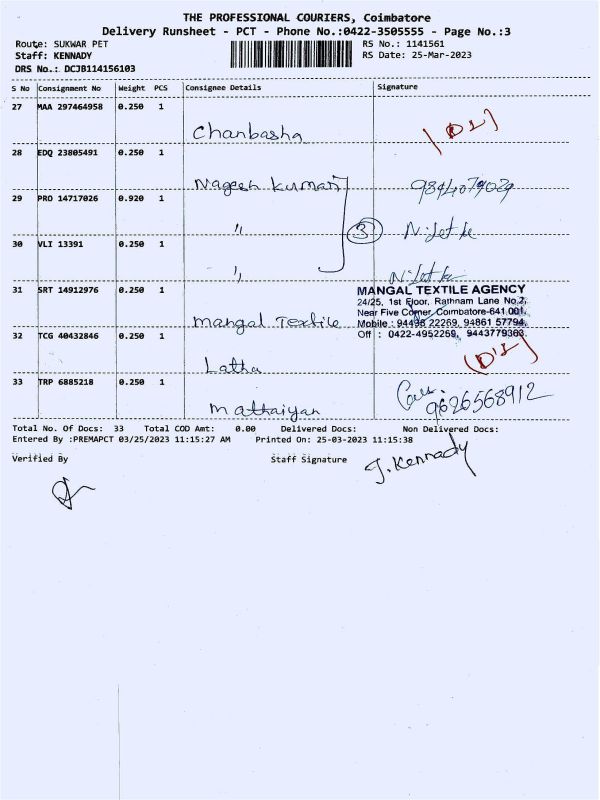 THE PROFESSIONAL COURIERS, Coimbatore
Delivery Runsheet - PCT - Phone No.:0422-3505555 - Page No.:3
Route: SUKWAR PET RS No.: 1141561
Staff: KENNADY RS Date: 25-Mar-2023
DRS No.: DCJB114156103
S No Consignment No Weight PCS Consignee Details Signature
27 MAA 297464958 0.250 1
Chanbasha
28 EDQ 23805491 0.250 1
Nagesh Kumar 9894079029
29 PRO 14717026 0.920 1
" 3
30 VLI 13391 0.250 1
"
31 SRT 14912976 0.250 1
MANGAL TEXTILE AGENCY
24/25, 1st Floor, Rathnam Lane No.2,
Near Five Corner, Coimbatore-641 001.
Mangal Textile Mobile : 94498 22269, 94861 57794,
32 TCG 40432846 0.250 1 Off : 0422-4952269, 9443779363.
Latha
33 TRP 6885218 0.250 1
Mathaiyan 9626568912
Total No. Of Docs: 33 Total COD Amt: 0.00 Delivered Docs: Non Delivered Docs:
Entered By :PREMAPCT 03/25/2023 11:15:27 AM Printed On: 25-03-2023 11:15:38
Verified By Staff Signature J. Kennady